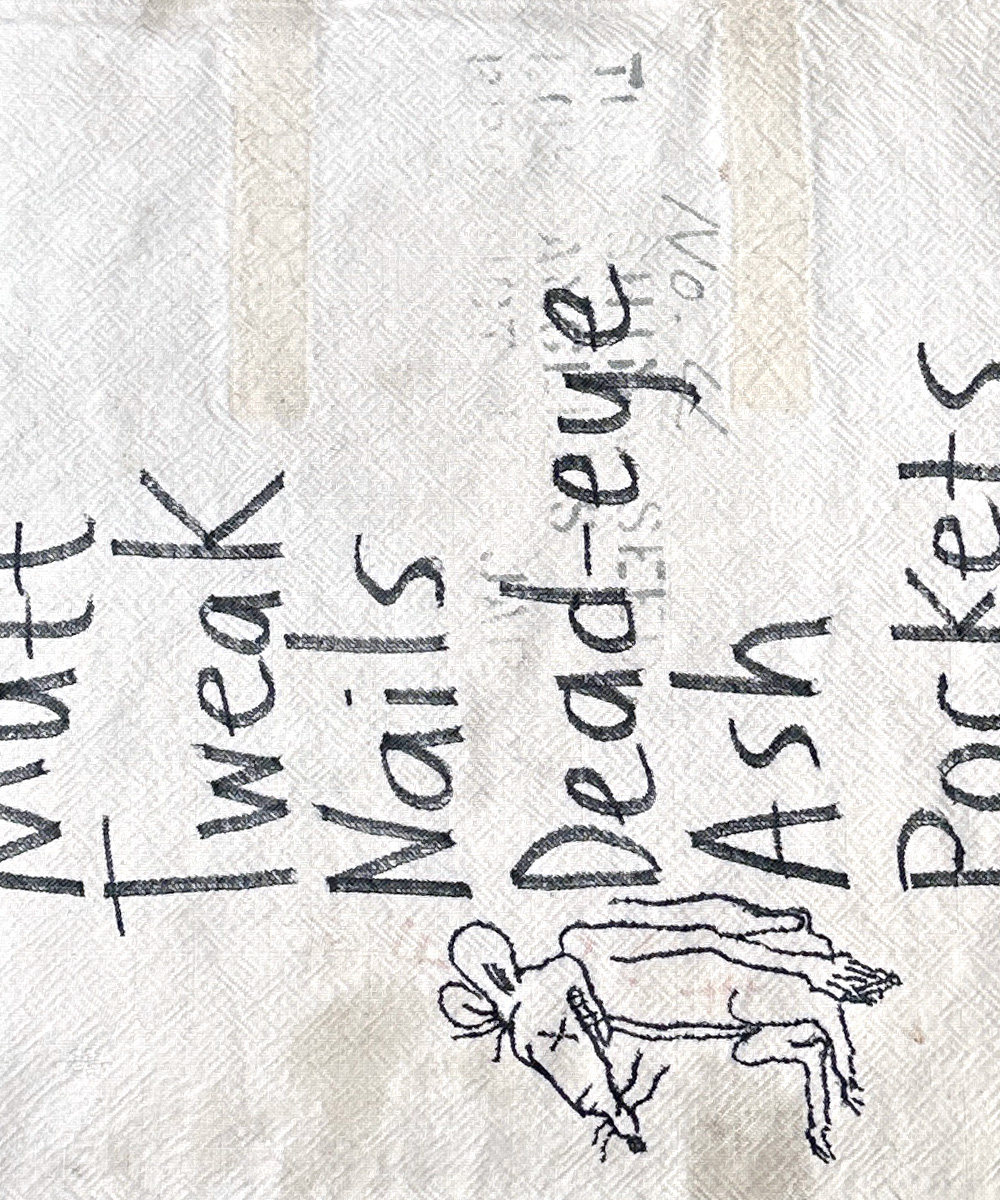 Mutt
Tweak
Nails
Dead-eye
Ash
Pockets
No.